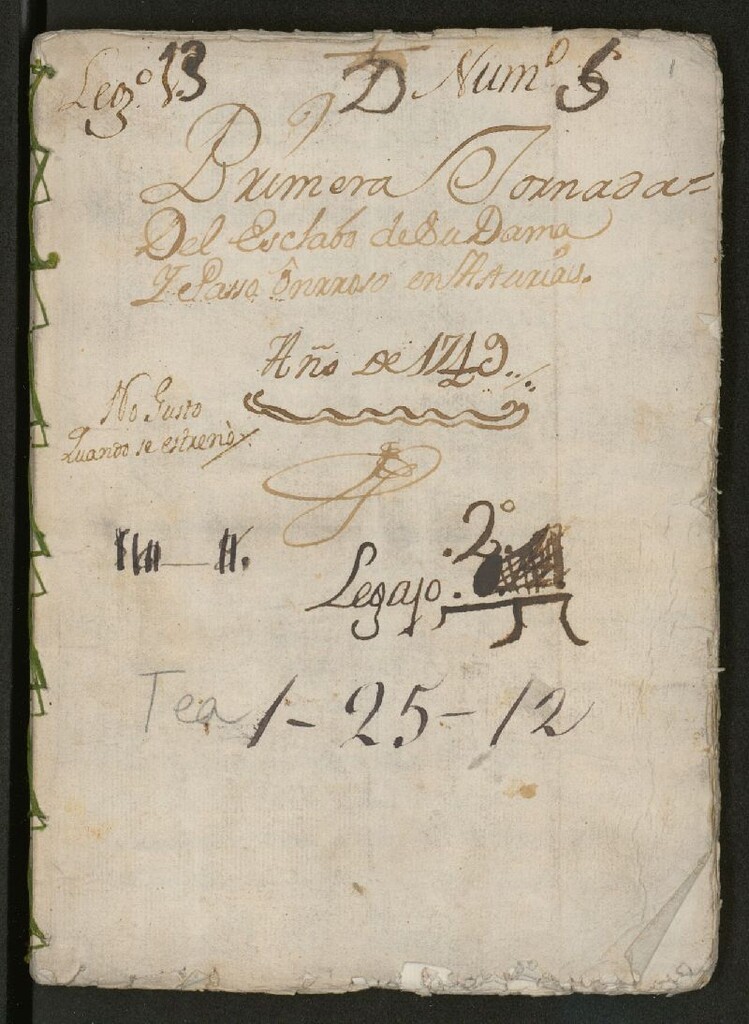 Leg.º 13 D Num.º 6
1
Primera Jornada=
Del Esclabo de Su Dama
Y Passo Onrroso en Asturias.
Año de 1749
No Gusto
Quando se estrenò
2º
Legajo
Tea 1-25-12